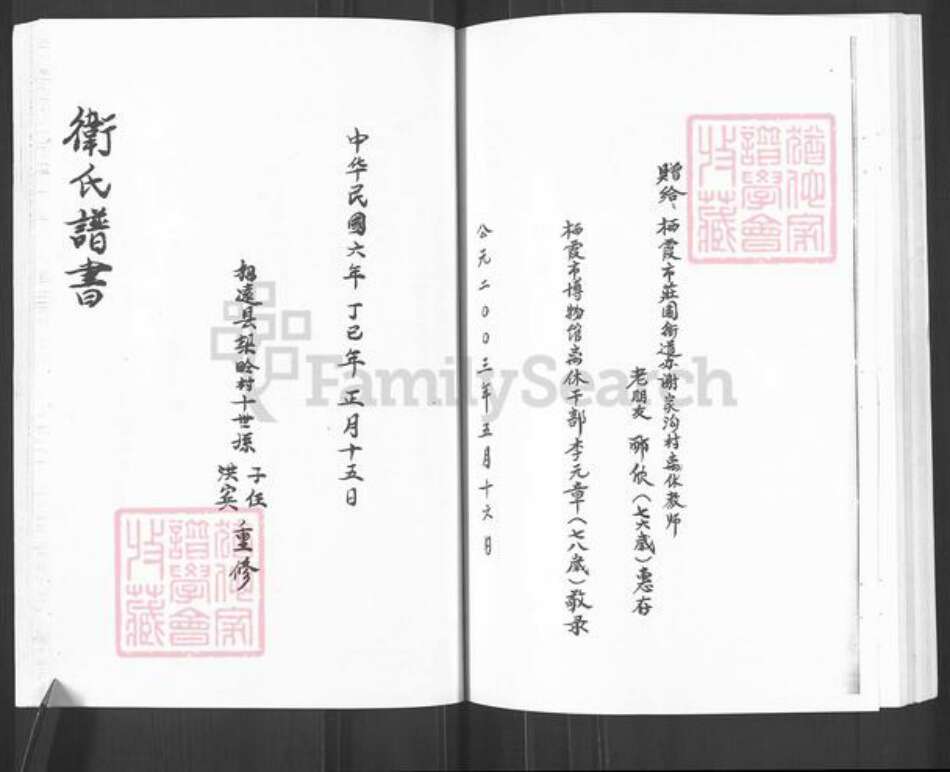 贈给、栖霞市莊园街道办谢家沟村离休教师
老朋友 欣（七六歲）惠存
栖霞市博物馆离休干部李元章（七八歲）敬录
公元二00三年五月十六日
中华民國六年 丁巳年 正月十五日
招遠县梨
村十世孫
子任
洪宾
重修
衛氏譜書
譜學會
收藏
譜學會
收藏
FamilySearch